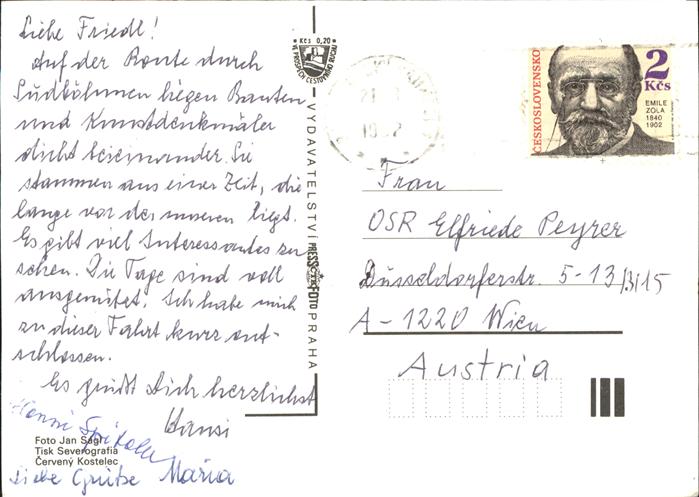 Liebe Friedl!
Auf der Route durch
Südböhmen liegen Bauten
und Kunstdenkmäler
dicht beieinander. Sie
stammen aus einer Zeit, die
lange vor der unseren liegt.
Es gibt viel Interessantes zu
sehen. Die Tage sind voll
ausgenützt. Ich habe mich
zu dieser Fahrt kurz ent-
schlossen.
Es grüßt Dich herzlichst
Hansi
Liebe Grüße Maria
Foto Jan Ságl
Tisk Severografia
Červený Kostelec
Kčs 0,20
VE PROSPĚCH CESTOVNÍHO RUCHU
VYDAVATELSTVÍ PRESSFOTO PRAHA
ČESKOSLOVENSKO
2
Kčs
EMILE
ZOLA
1840
1902
Frau
OSR Elfriede Peyrer
Düsseldorferstr. 5-13/3/15
A-1220 Wien
Austria